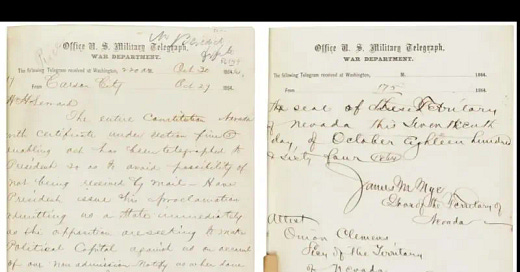 Office U. S. Military Telegraph,
WAR DEPARTMENT.
The following Telegram received at Washington, 2 20 M. Oct 30 1864.
From Carson City Oct 29 1864.
Wm H Seward
The entire Constitution Nevada
with certificate under section five
enabling act has been telegraphed to
President so as to avoid possibility of
not being received by mail – Have
President issue his Proclamation
admitting us as a State immediately
as the opposition are seeking to make
Political Capital against us on account
of our non admission. Notify
Office U. S. Military Telegraph,
WAR DEPARTMENT.
The following Telegram received at Washington, M. 1864.
From 175 1864.
the seal of Territory
of Nevada this
day of October Eighteen hundred
& sixty four
James W Nye
Governor of the Territory of
Nevada
Attest
Orion Clemens
Secy of the Territory
of Nevada